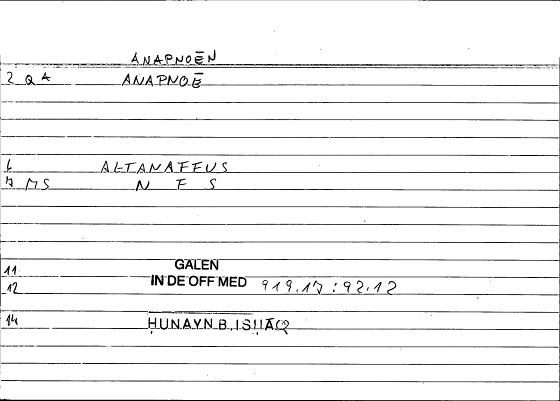 ANAPNOĒN
2 QA ANAPNOĒ
6 ALTANAFFUS
7 MS N F S
11 GALEN
12 IN DE OFF MED 919.17:92.12
14 ḤUNAYN B. ISḤĀQ